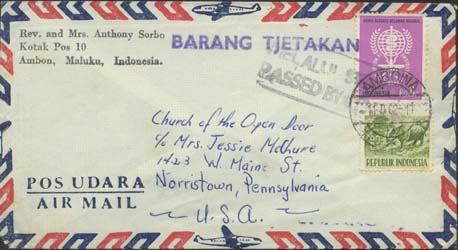 Rev. and Mrs. Anthony Sorbo
Kotak Pos 10
Ambon, Maluku, Indonesia.
BARANG TJETAKAN
PASSED BY
AMBOINA
REPUBLIK INDONESIA
Church of the Open Door
c/o Mrs. Jessie McClure
1423 W. Main St.
Norristown, Pennsylvania
U.S.A.
POS UDARA
AIR MAIL